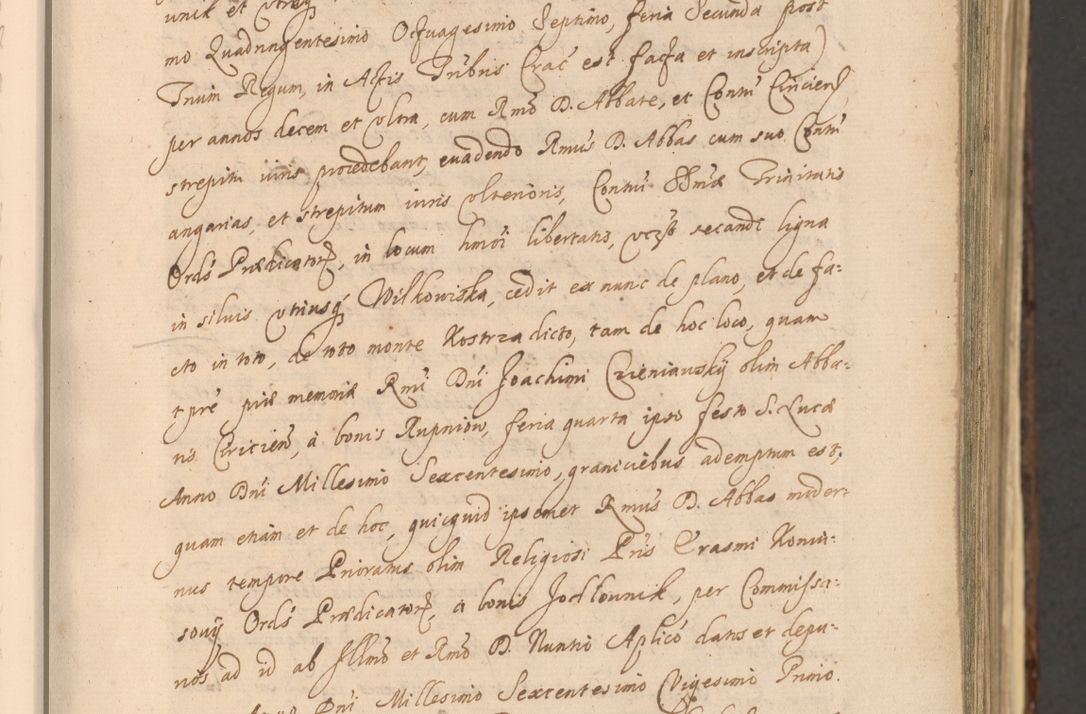 unik et utrag
mo Quadringentesimo Octuagesimo Septimo, feria Secunda post
Trium Regum, in Actis Tribūs Crac̄ est facta et inscripta)
per annos decem et ultra, cum Rmo D. Abbate, et Contū Ciriciens,
strepitu iuris procedebant, evadendo Rmus D. Abbas cum suo Contū
angarias, et strepitum iuris ulterioris, Contui SSmæ Trinitatis
Ords Prædicator, in locum hmōi libertatis, vczt secandi ligna
in siluis utriusq Wilkowiska, cedit ex nunc de plano, et de fa:
cto in toto, de toto monte Kostrza dicto, tam de hoc loco, quam
t præ piæ memoriæ Rmi Dni Joachimi Czieniawsky olim Abba:
tis Ciricien, à bonis Rupniow, feria quarta ipso festo S. Lucæ
Anno Dni Millesimo Sexcentesimo, graniciebus ademptum est,
quam etiam et de hoc, quicquid ipsemet Rmus D. Abbas moder:
nus tempore Prioratus olim Religiosi Pris Erasmi Koniu:
sovij Ords Prædicator, à bonis Jodlownik, per Commissa:
rios ad id ab Illmo et Rmo D. Nuntio Aplico datos et depu:
Anno Dni Millesimo Sexcentesimo Vigesimo Primo.